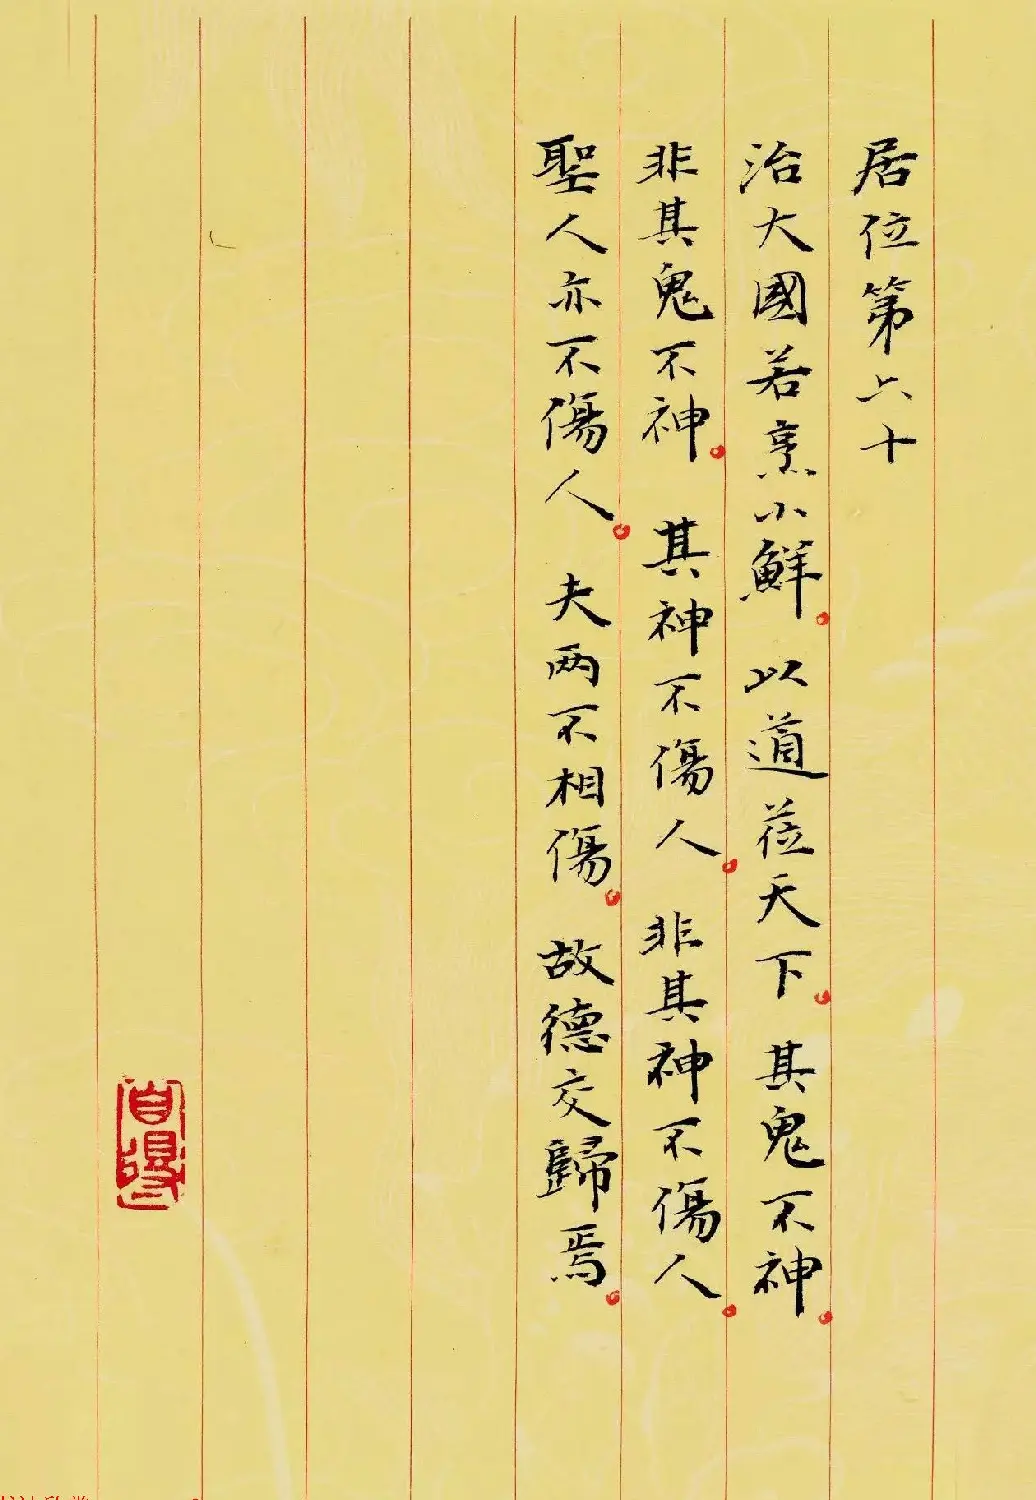 居位第六十
治大國若烹小鮮。以道莅天下。其鬼不神。
非其鬼不神。其神不傷人。非其神不傷人。
聖人亦不傷人。夫两不相傷。故德交歸焉。
自得